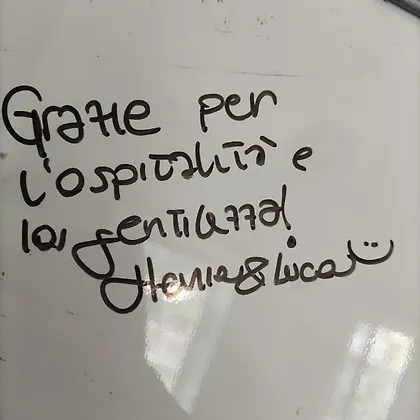 Grazie per
l'ospitalità e
la gentilezza
& Luca